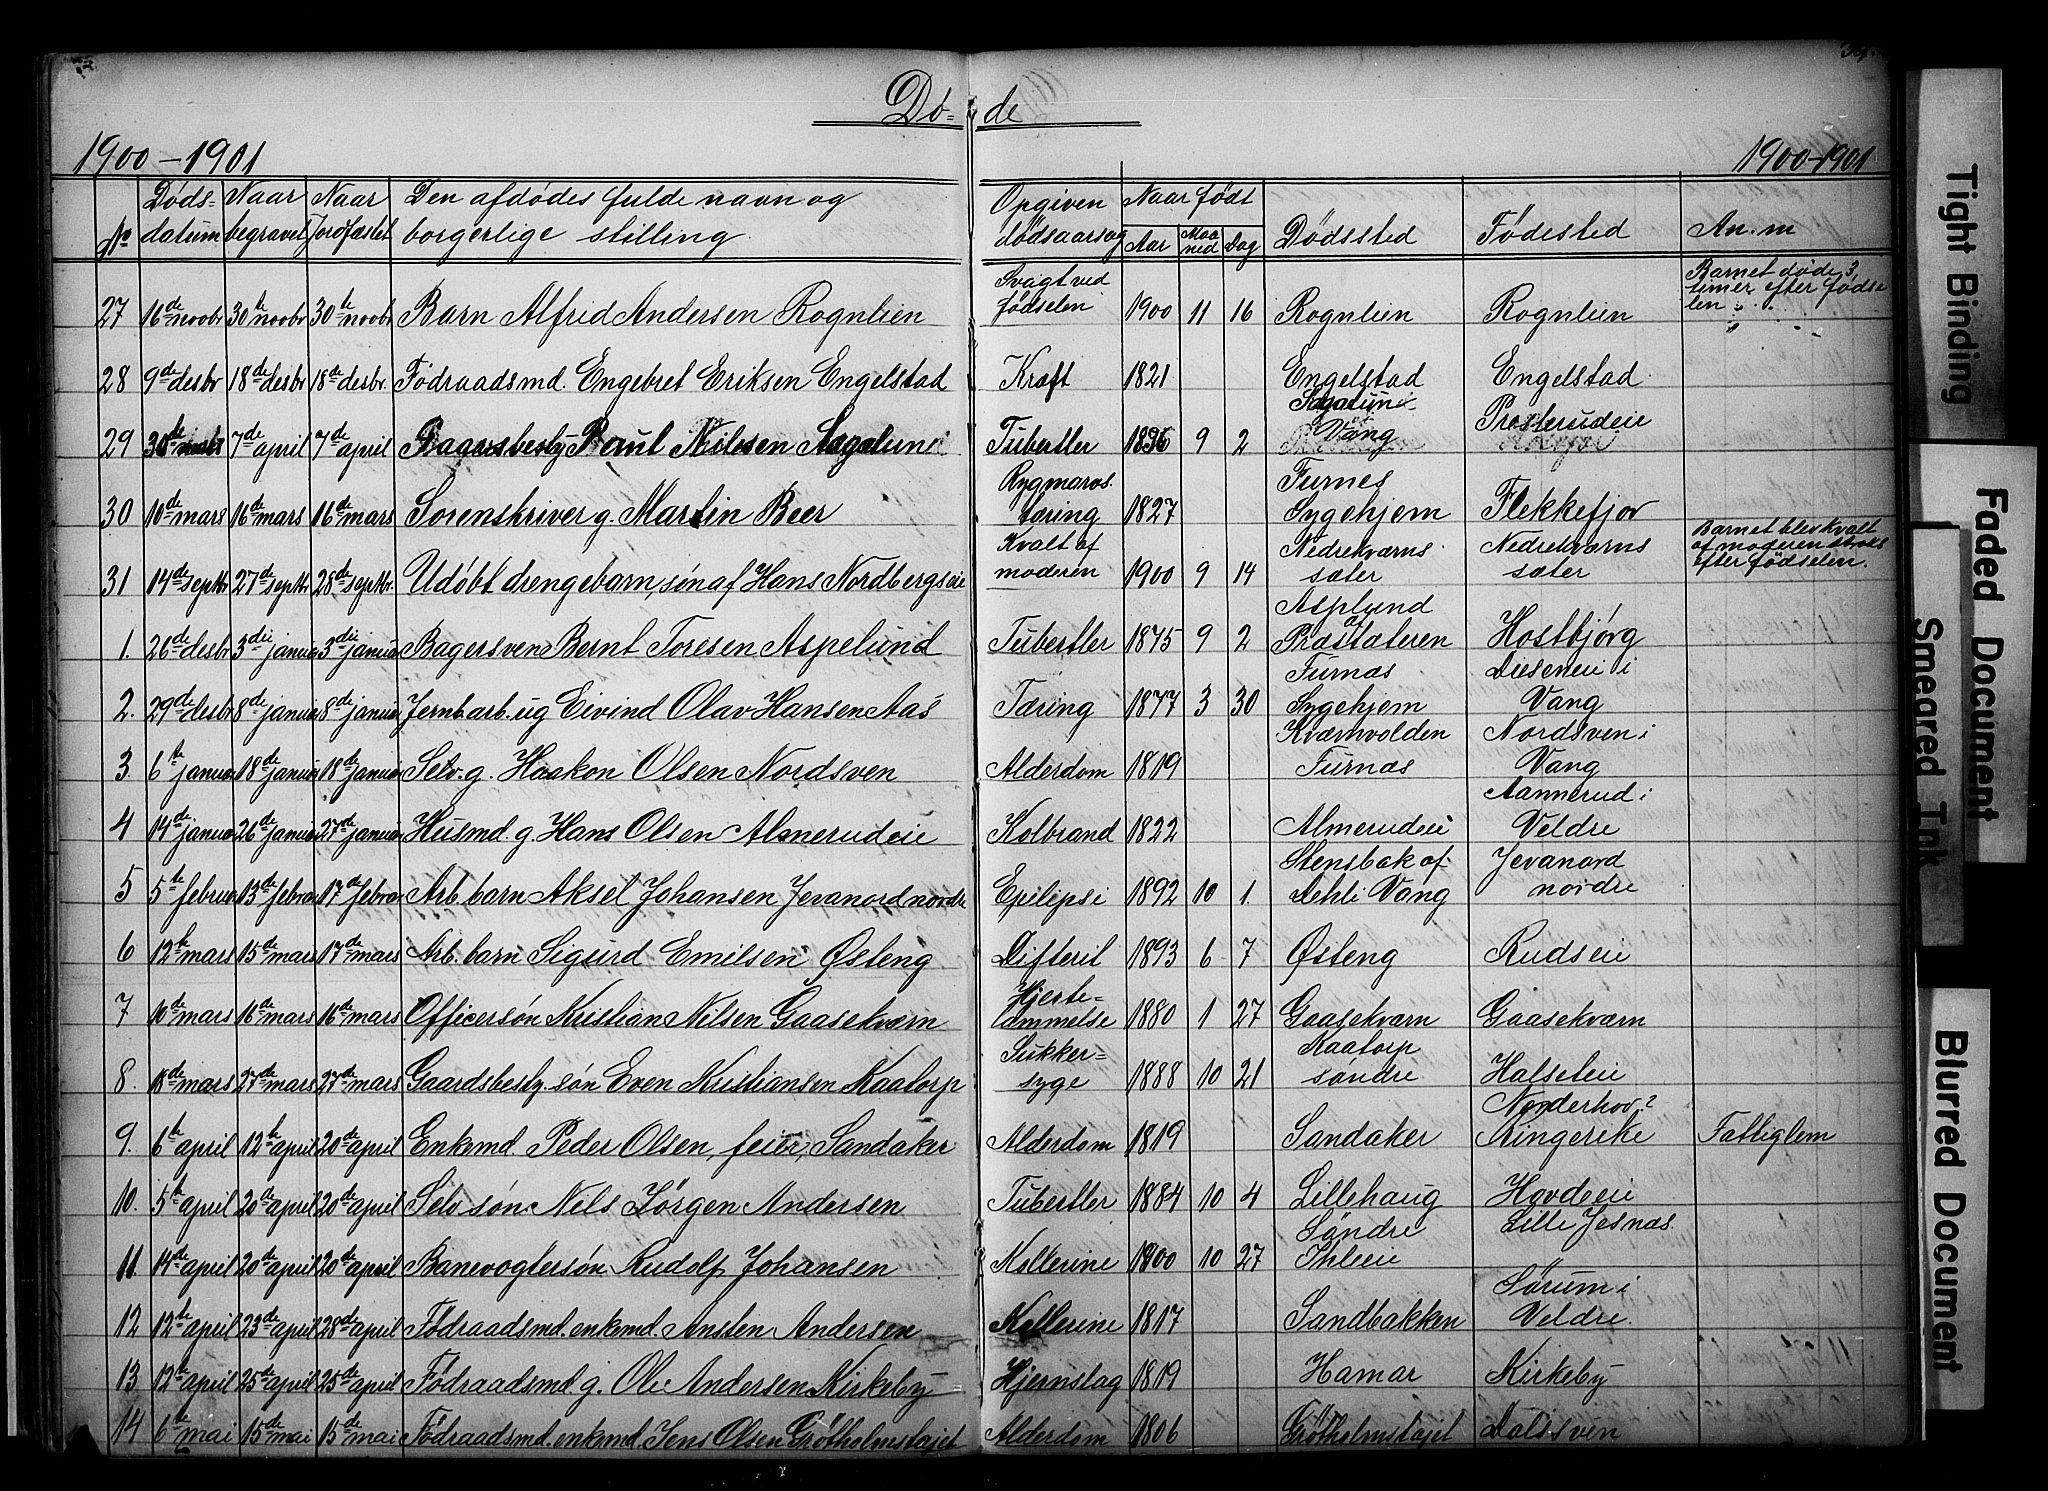 Dö- de
1900-1901 1900-1901
No Döds-datum Naar begravet Naar Jordfæstet Den afdödes fulde navn og borgerlige stilling. Opgiven dödsaarsag Naar født Aar Maaned Dag Dödssted Födested An.m
27 16de novbr 30te novbr 30te novbr Barn Alfred Andersen Rognlien Svagt ved födselen 1900 11 16 Rognlien Rognlien Barnet døde 3 timer efter fødselen
28 9de desbr 18de desbr 18de desbr. Födraadsmd. Engebret Eriksen Engelstad Kræft 1821 Engelstad Engelstad
29 30te 7de april 7de april Paul Nilssen Sagalund Tuberkler 1836 9 2 Sagatun Vang Prosterudeie
30 10de mars 16de mars 16de mars Sorenskriver g. Martin Beer Rygmarvs tæring 1827 Furnes Sygehjem Flekkefjor
31 14de septbr 27de septbr 28de septbr. Udöbt drengebarn, søn af Hans Nordbergseie Kvalt af moderen 1900 9 14 Nedrekværns sæter Nedrekværns sæter Barnet blev kvalt af moderen straks efter födselen.
1. 26de desbr 3die januar 3die januar Bagersven Bernt Toresen Aspelund Tuberkler 1875 9 2 Asplund af Præstæteren Hostbjørg
2. 29de desbr 8de januar 8de januar Jernb.arb. ug Eivind Olav Hansen Aas Tæring 1877 3 30 Furnæs Sygehjem Dieseneie i Vang
3. 6te januar 18de januar 18de januar Selv. g. Haakon Olsen Nordsven Alderdom 1819 Kværnvolden Furnæs Nordsven i Vang
4 14de januar 26de januar 27de januar Husmd. g Hans Olsen Almerudeie Kolbrand 1822 Almerudeie Aannerud i Veldre
5 5te februar 13de febrar 17de febrar Arb. barn Aksel Johansen Jevanord nordre Epilepsi 1892 10 1. Stensbak af Aehli Vang Jevanord nordre
6 12te mars 15de mars 17de mars Arb. barn Sigurd Emilsen Østeng Difterit 1893 6 7 Østeng Rudseie
7 10de mars 16de mars 16de mars Officersön Kristian Nilsen Gaasekværn Hjerte=lammelse 1880 1 27 Gaasekværn Gaasekværn
8. 18de mars 27de mars 27de mars Gaardsbesty. sön Even Kristiansen Kaatorp Sukker=syge 1888 10 21 Kaatorp söndre Halseteie
9. 6te april 12te april 20de april Enkemd. Peder Olsen, feier, Sandaker Alderdom 1819 Sandaker Norderhov? Ringerike Fattiglem
10. 5te april 20de april 20de april Selv sön Nels Jørgen Andersen Tuberkler 1884 10 4 Lillehaug Hovdeeie
11 14de april 20de april 20de april Banevogtersön Rudolf Johansen Kellerine 1900 10 27 Söndre Ihleeie Lille Jesnæs
12 12te april 23de april 28de april Födraadsmd. enkemd. Ansten Andersen Kellerine 1817 Sandbakken Sörum i Veldre.
13 12te april 25de april 25de april Födraadsmd g. Ole Andersen Kirkeby Hjernslag 1819 Hamar Kirkeby
14 6te mai 15de mai 15de mai Födraadsmd. enkemd. Jens Olsen Grötholmstøjet Alderdom 1806 Grötholmstøjet Dalssven
Tight Binding
Faded Document
Smeared Ink
Blurred Document